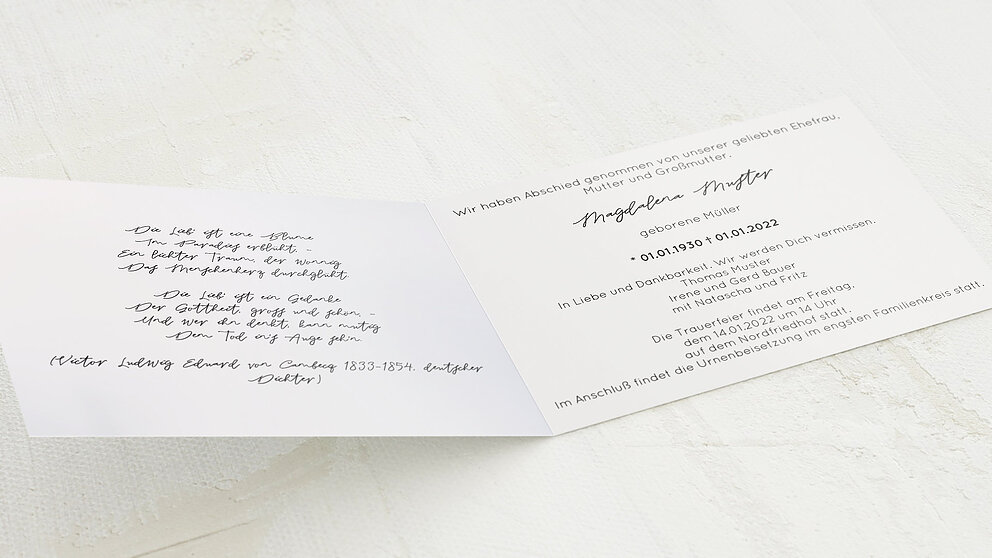 Die Lieb' ist eine Blume
Im Paradies erblüht, -
Ein lichter Traum, der wonnig
Das Menschenherz durchglüht,
Die Lieb' ist ein Gedanke
Der Gottheit, gross und schön, -
Und wer ihn denkt, kann mutig
Dem Tod in's Auge seh'n.
(Victor Ludwig Eduard von Cambecq 1833-1854, deutscher
Dichter)
Wir haben Abschied genommen von unserer geliebten Ehefrau,
Mutter und Großmutter.
Magdalena Muster
geborene Müller
* 01.01.1930 † 01.01.2022
In Liebe und Dankbarkeit. Wir werden Dich vermissen.
Thomas Muster
Irene und Gerd Bauer
mit Natascha und Fritz
Die Trauerfeier findet am Freitag,
dem 14.01.2022 um 14 Uhr
auf dem Nordfriedhof statt.
Im Anschluß findet die Urnenbeisetzung im engsten Familienkreis statt.